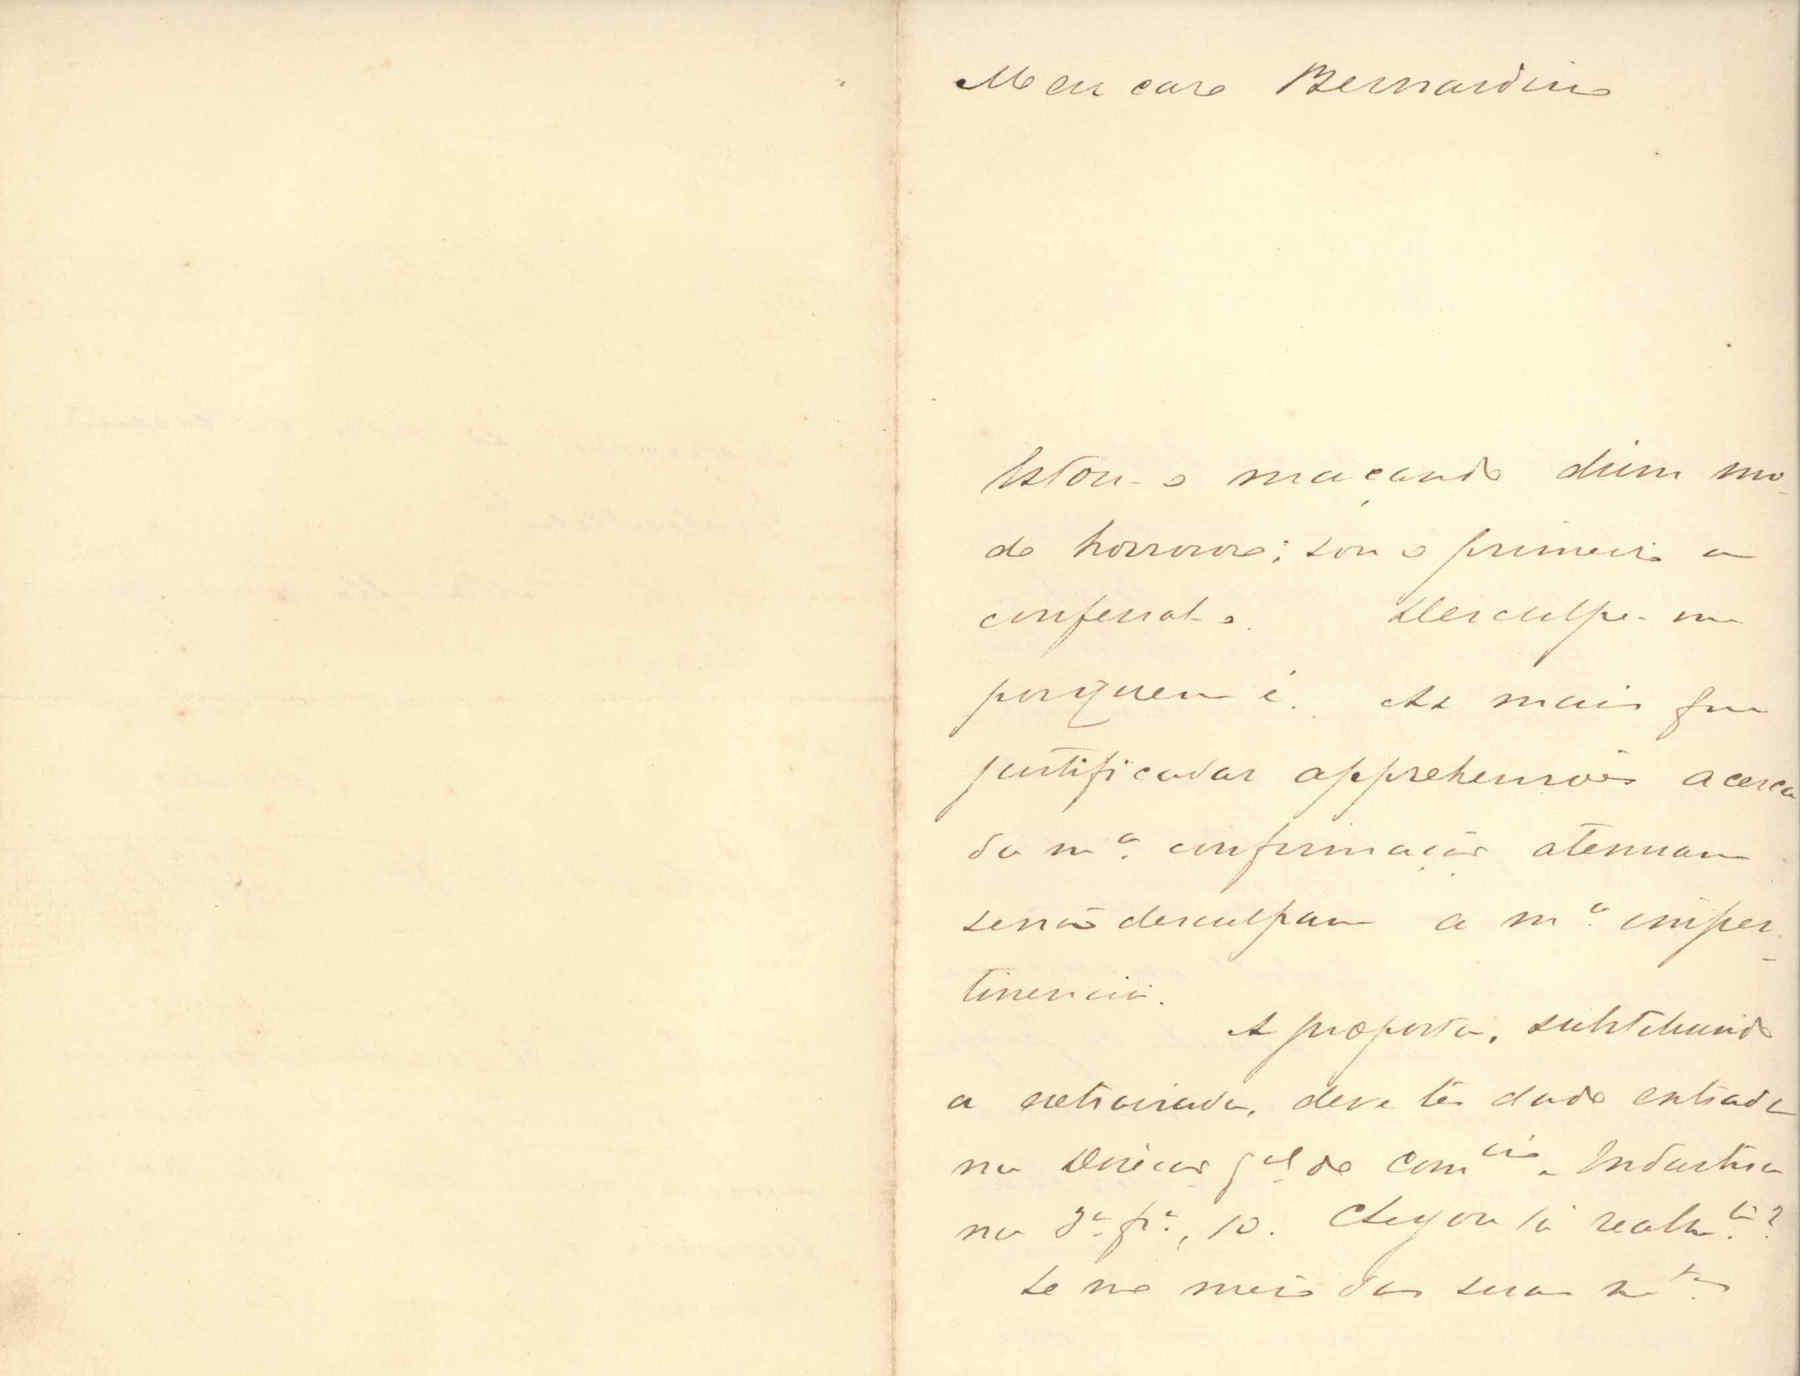 Meu caro Bernardino
Estou-o maçando d'um mo-
do horroroso; sou o primeiro a
confessal-o. Desculpe-me
porquem é. As mais que
justificadas apprehensões acerca
da m.ª confirmação atenuam
senão desculpam a m.ª imper-
tinencia.
A proposta, substituindo
a extraviada, deve ter dado entrada
na Direcção g.al do Com.cio e Industria
na 3.ª fr.ª, 10. Chegou lá realm.te?
Se no meio das suas m.tas